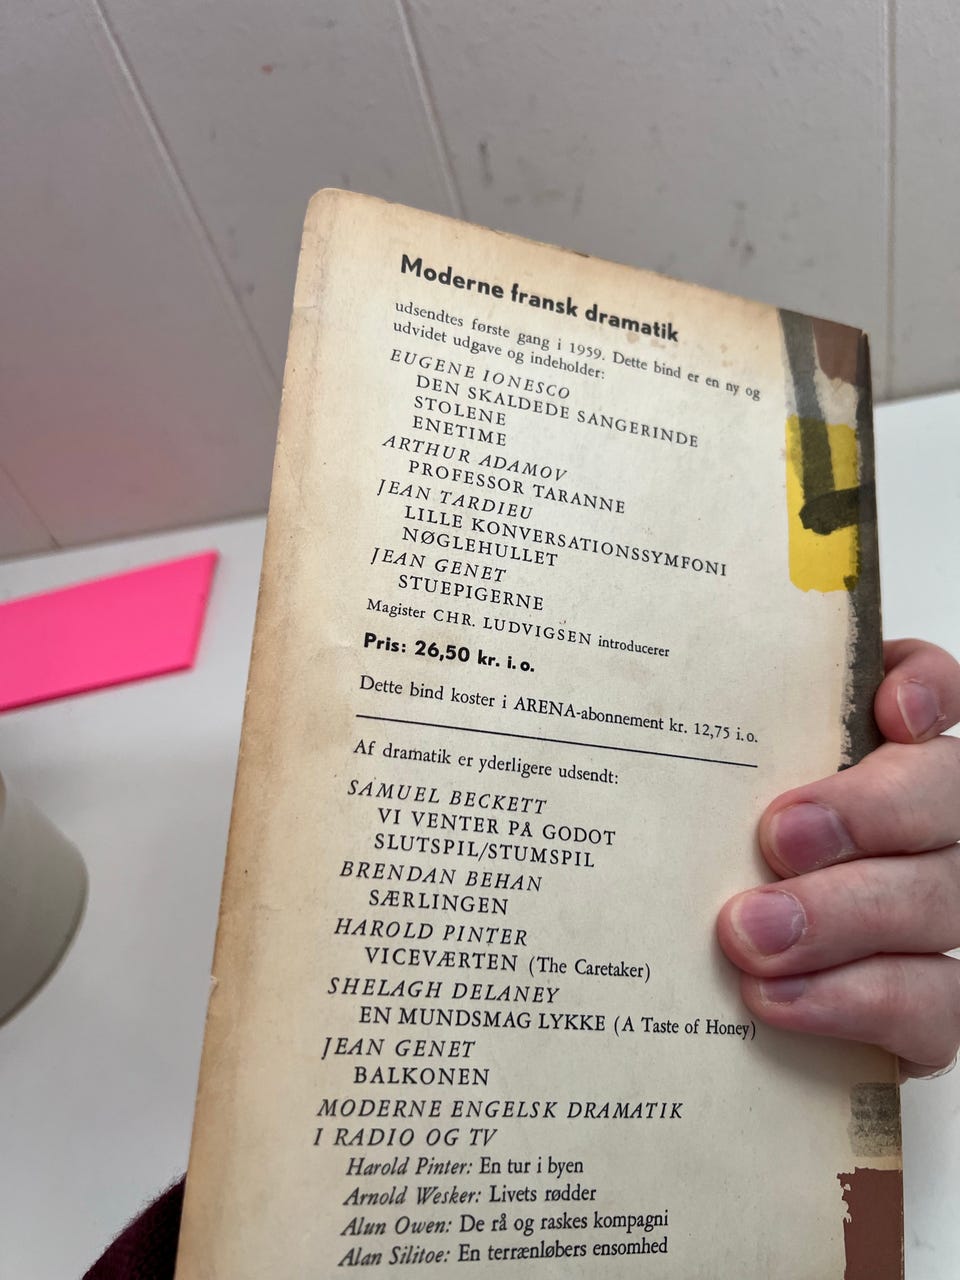 Moderne fransk dramatik
udsendtes første gang i 1959. Dette bind er en ny og
udvidet udgave og indeholder:
EUGENE IONESCO
DEN SKALDEDE SANGERINDE
STOLENE
ENETIME
ARTHUR ADAMOV
PROFESSOR TARANNE
JEAN TARDIEU
LILLE KONVERSATIONSSYMFONI
NØGLEHULLET
JEAN GENET
STUEPIGERNE
Magister CHR. LUDVIGSEN introducerer
Pris: 26,50 kr. i. o.
Dette bind koster i ARENA-abonnement kr. 12,75 i. o.
Af dramatik er yderligere udsendt:
SAMUEL BECKETT
VI VENTER PÅ GODOT
SLUTSPIL/STUMSPIL
BRENDAN BEHAN
SÆRLINGEN
HAROLD PINTER
VICEVÆRTEN (The Caretaker)
SHELAGH DELANEY
EN MUNDSMAG LYKKE (A Taste of Honey)
JEAN GENET
BALKONEN
MODERNE ENGELSK DRAMATIK
I RADIO OG TV
Harold Pinter: En tur i byen
Arnold Wesker: Livets rødder
Alun Owen: De rå og raskes kompagni
Alan Silitoe: En terrænløbers ensomhed